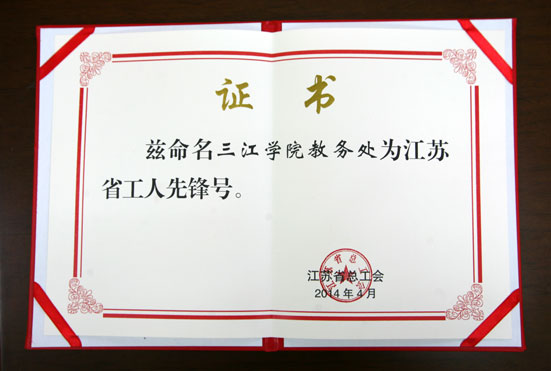 证 书
兹命名三江学院教务处为江苏
省工人先锋号。
江苏省总工会
2014年4月